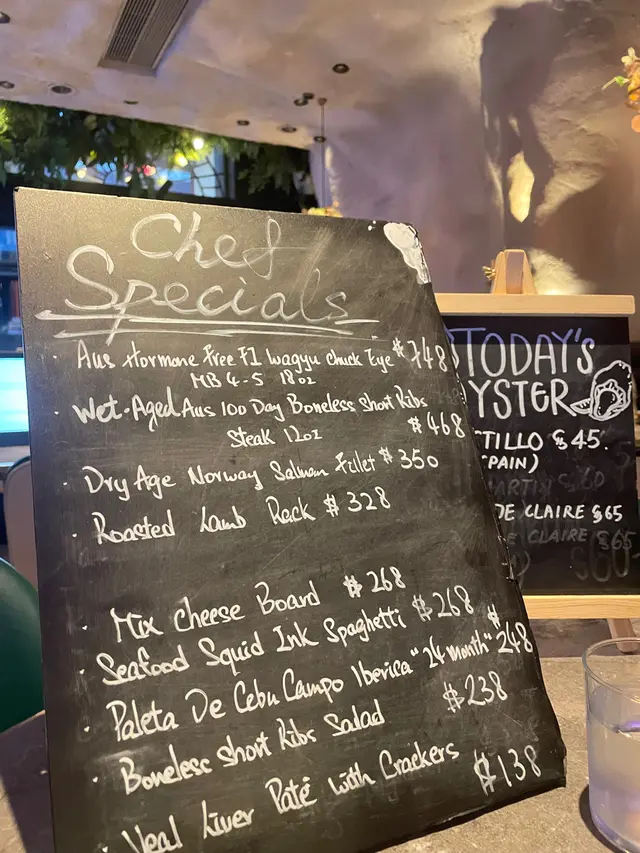 Chef
Specials
· Aus Hormone Free F1 Wagyu Chuck Eye $748
MB 4-5 18oz
· Wet-Aged Aus 100 Day Boneless Short Ribs
Steak 12oz $468
· Dry Age Norway Salmon Fillet $350
· Roasted Lamb Rack $328
· Mix Cheese Board $268
· Seafood Squid Ink Spaghetti $268
· Paleta De Cebu Campo Iberica "24 month" $248
· Boneless Short Ribs Salad $238
· Veal Liver Paté with Crackers $138
TODAY'S
YSTER
TILLO $45.
(PAIN)
DE CLAIRE $65
E CLAIRE $65